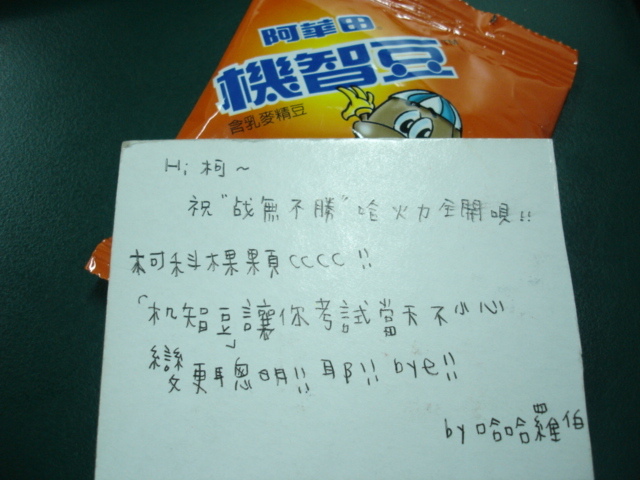 阿華田
機智豆
含乳麥精豆
Hi 柯~
祝"战無不勝"哈火力全開唄!!
柯科棵顆cccc!!
「机智豆」讓你考試當天不小心
變更聰明!!耶!!bye!!
by 哈哈羅伯